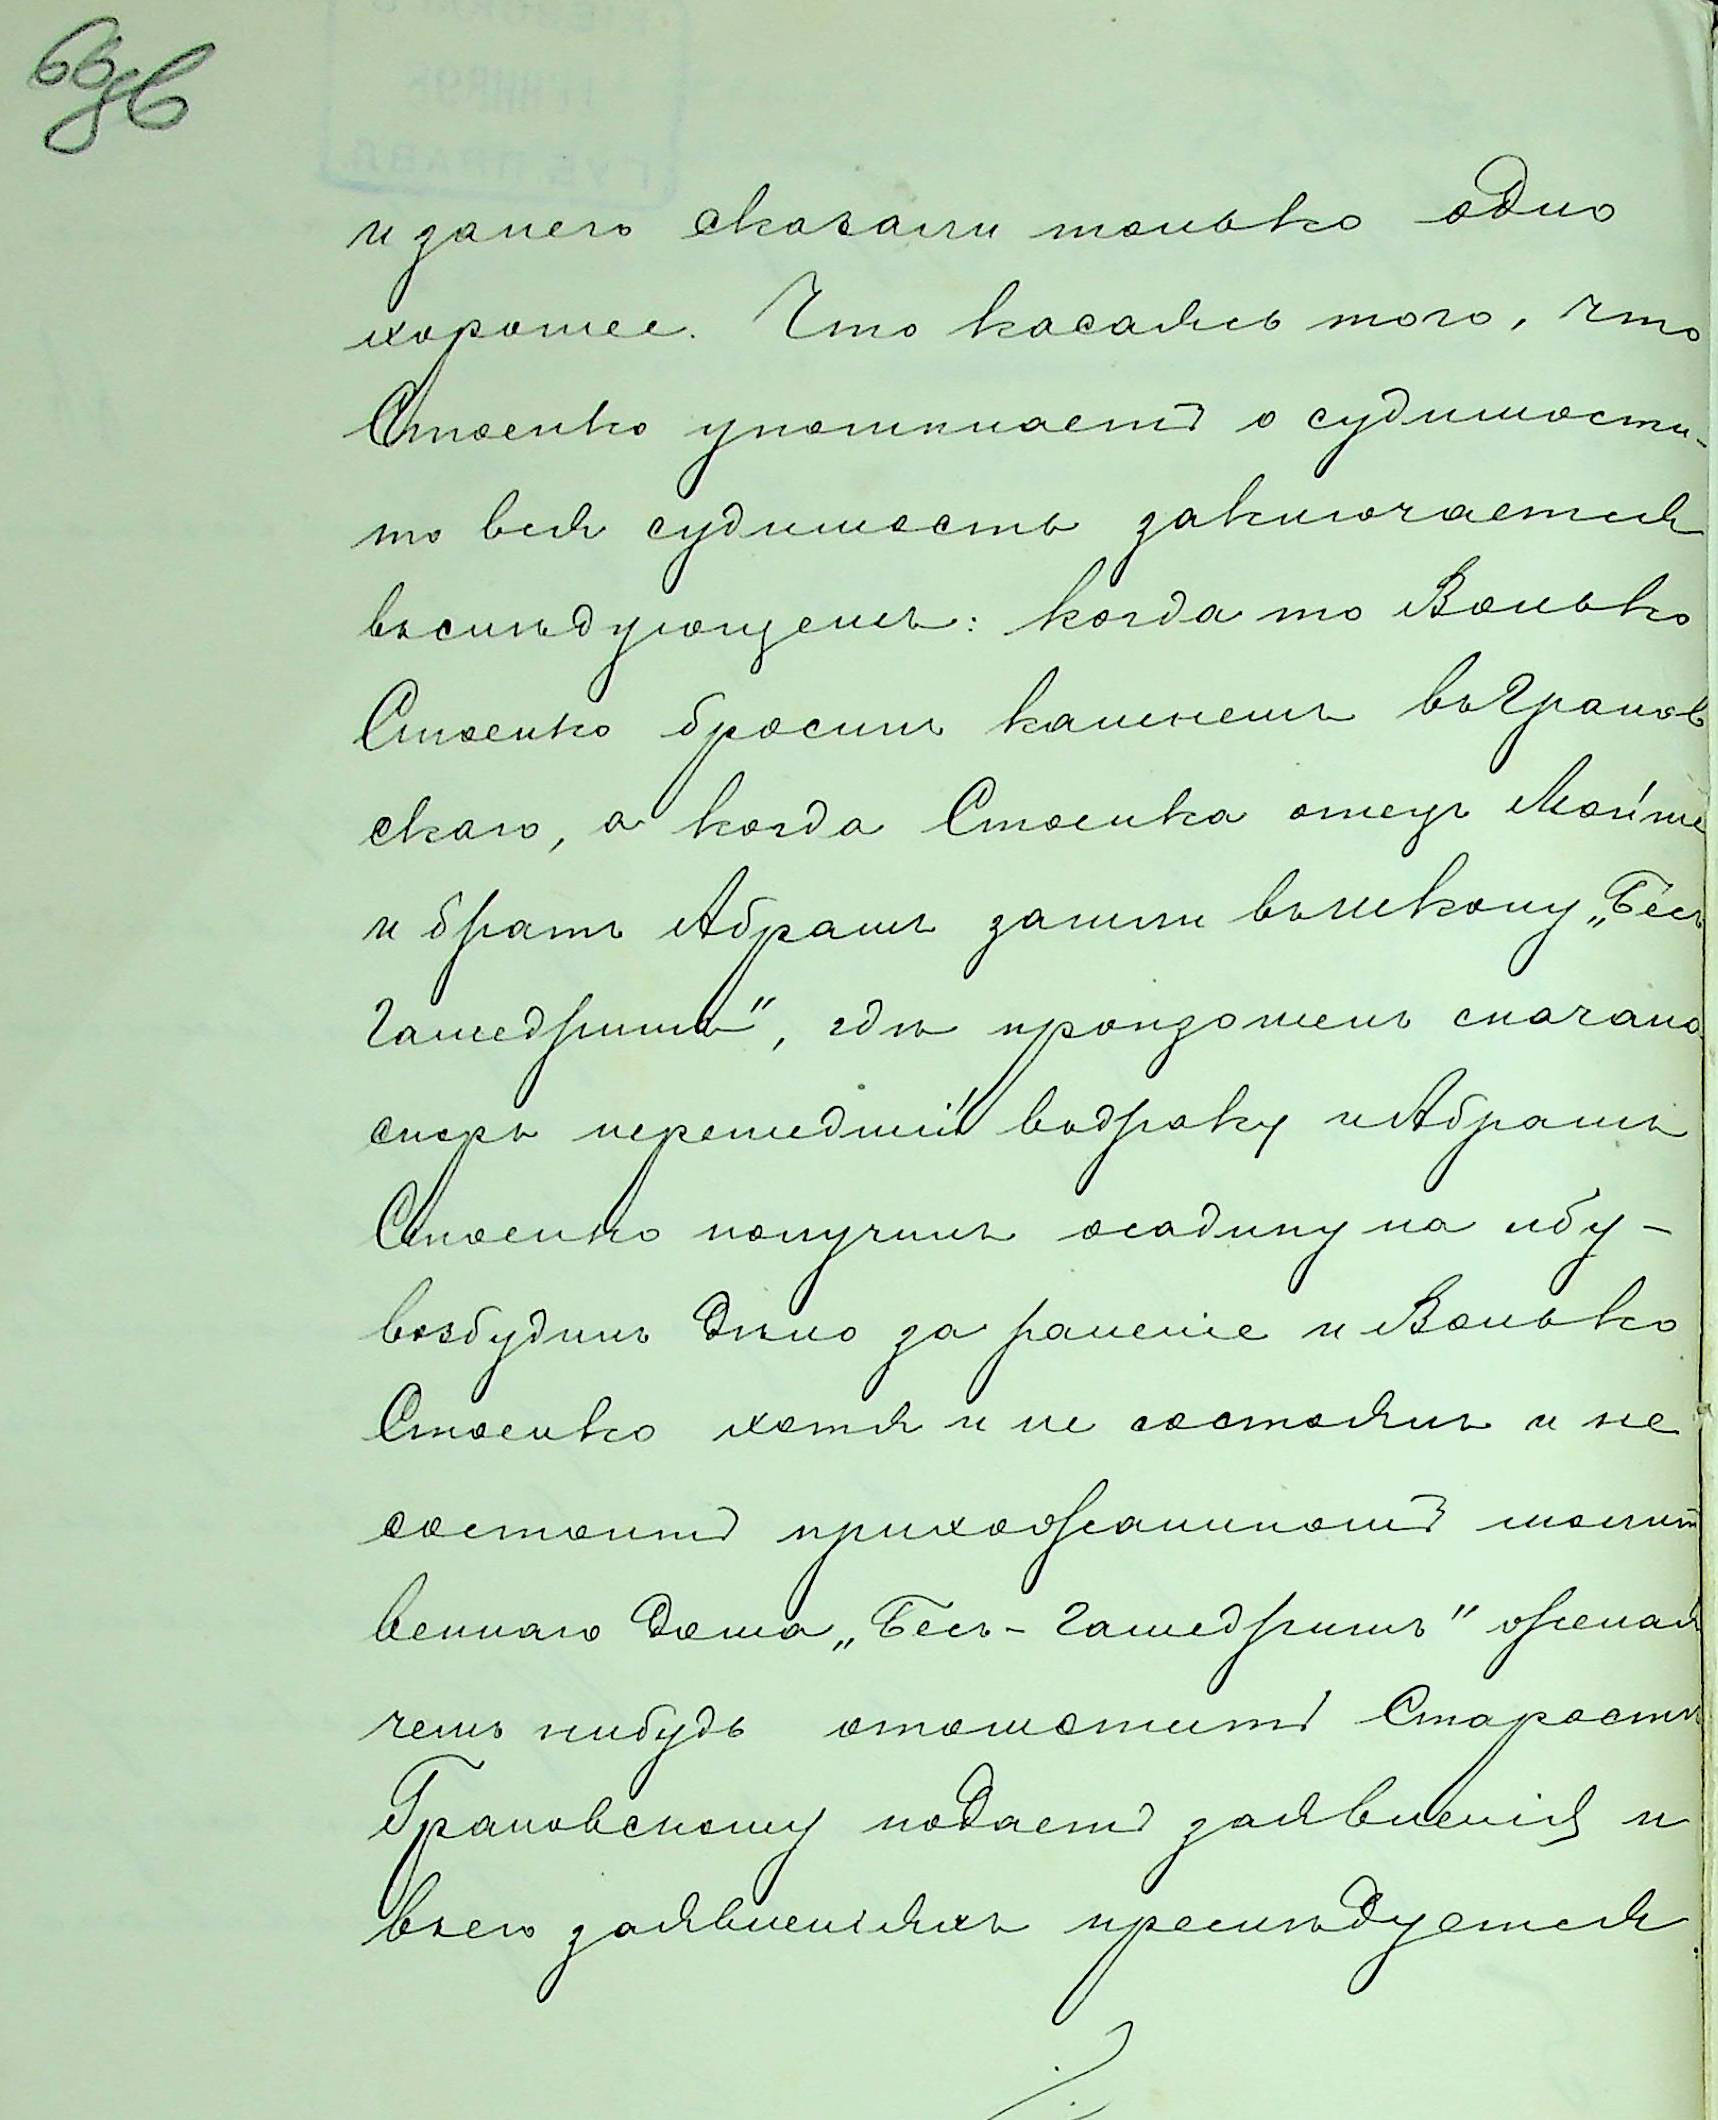 66 об
и занего сказали только одно
хорошее. Что касаясь того, что
Стоенко упоминаетъ о судимости-
то вся судимость заключается
въслѣдующемъ: когда то Волько
Стоенко бросилъ камнемъ въГранов
скаго, а когда Стоенка отецъ Мойше
и братъ Абрамъ зашли въшколу „Бесъ
Гамедришъ", гдѣ произошелъ сначала
споръ перешедшій вьдраку иАбрамъ
Стоенко получилъ осадину на лбу-
возбудилъ дѣло за раненіе и Волько
Стоенко хотя и не состоялъ и не
состоитъ прихожаниномъ молит
веннаго дома „Бесъ-Гамедришъ" желая
чемъ нибудь отомстить Старостѣ
Грановскому подаетъ заявленія и
въего заявленіяхъ преслѣдуется